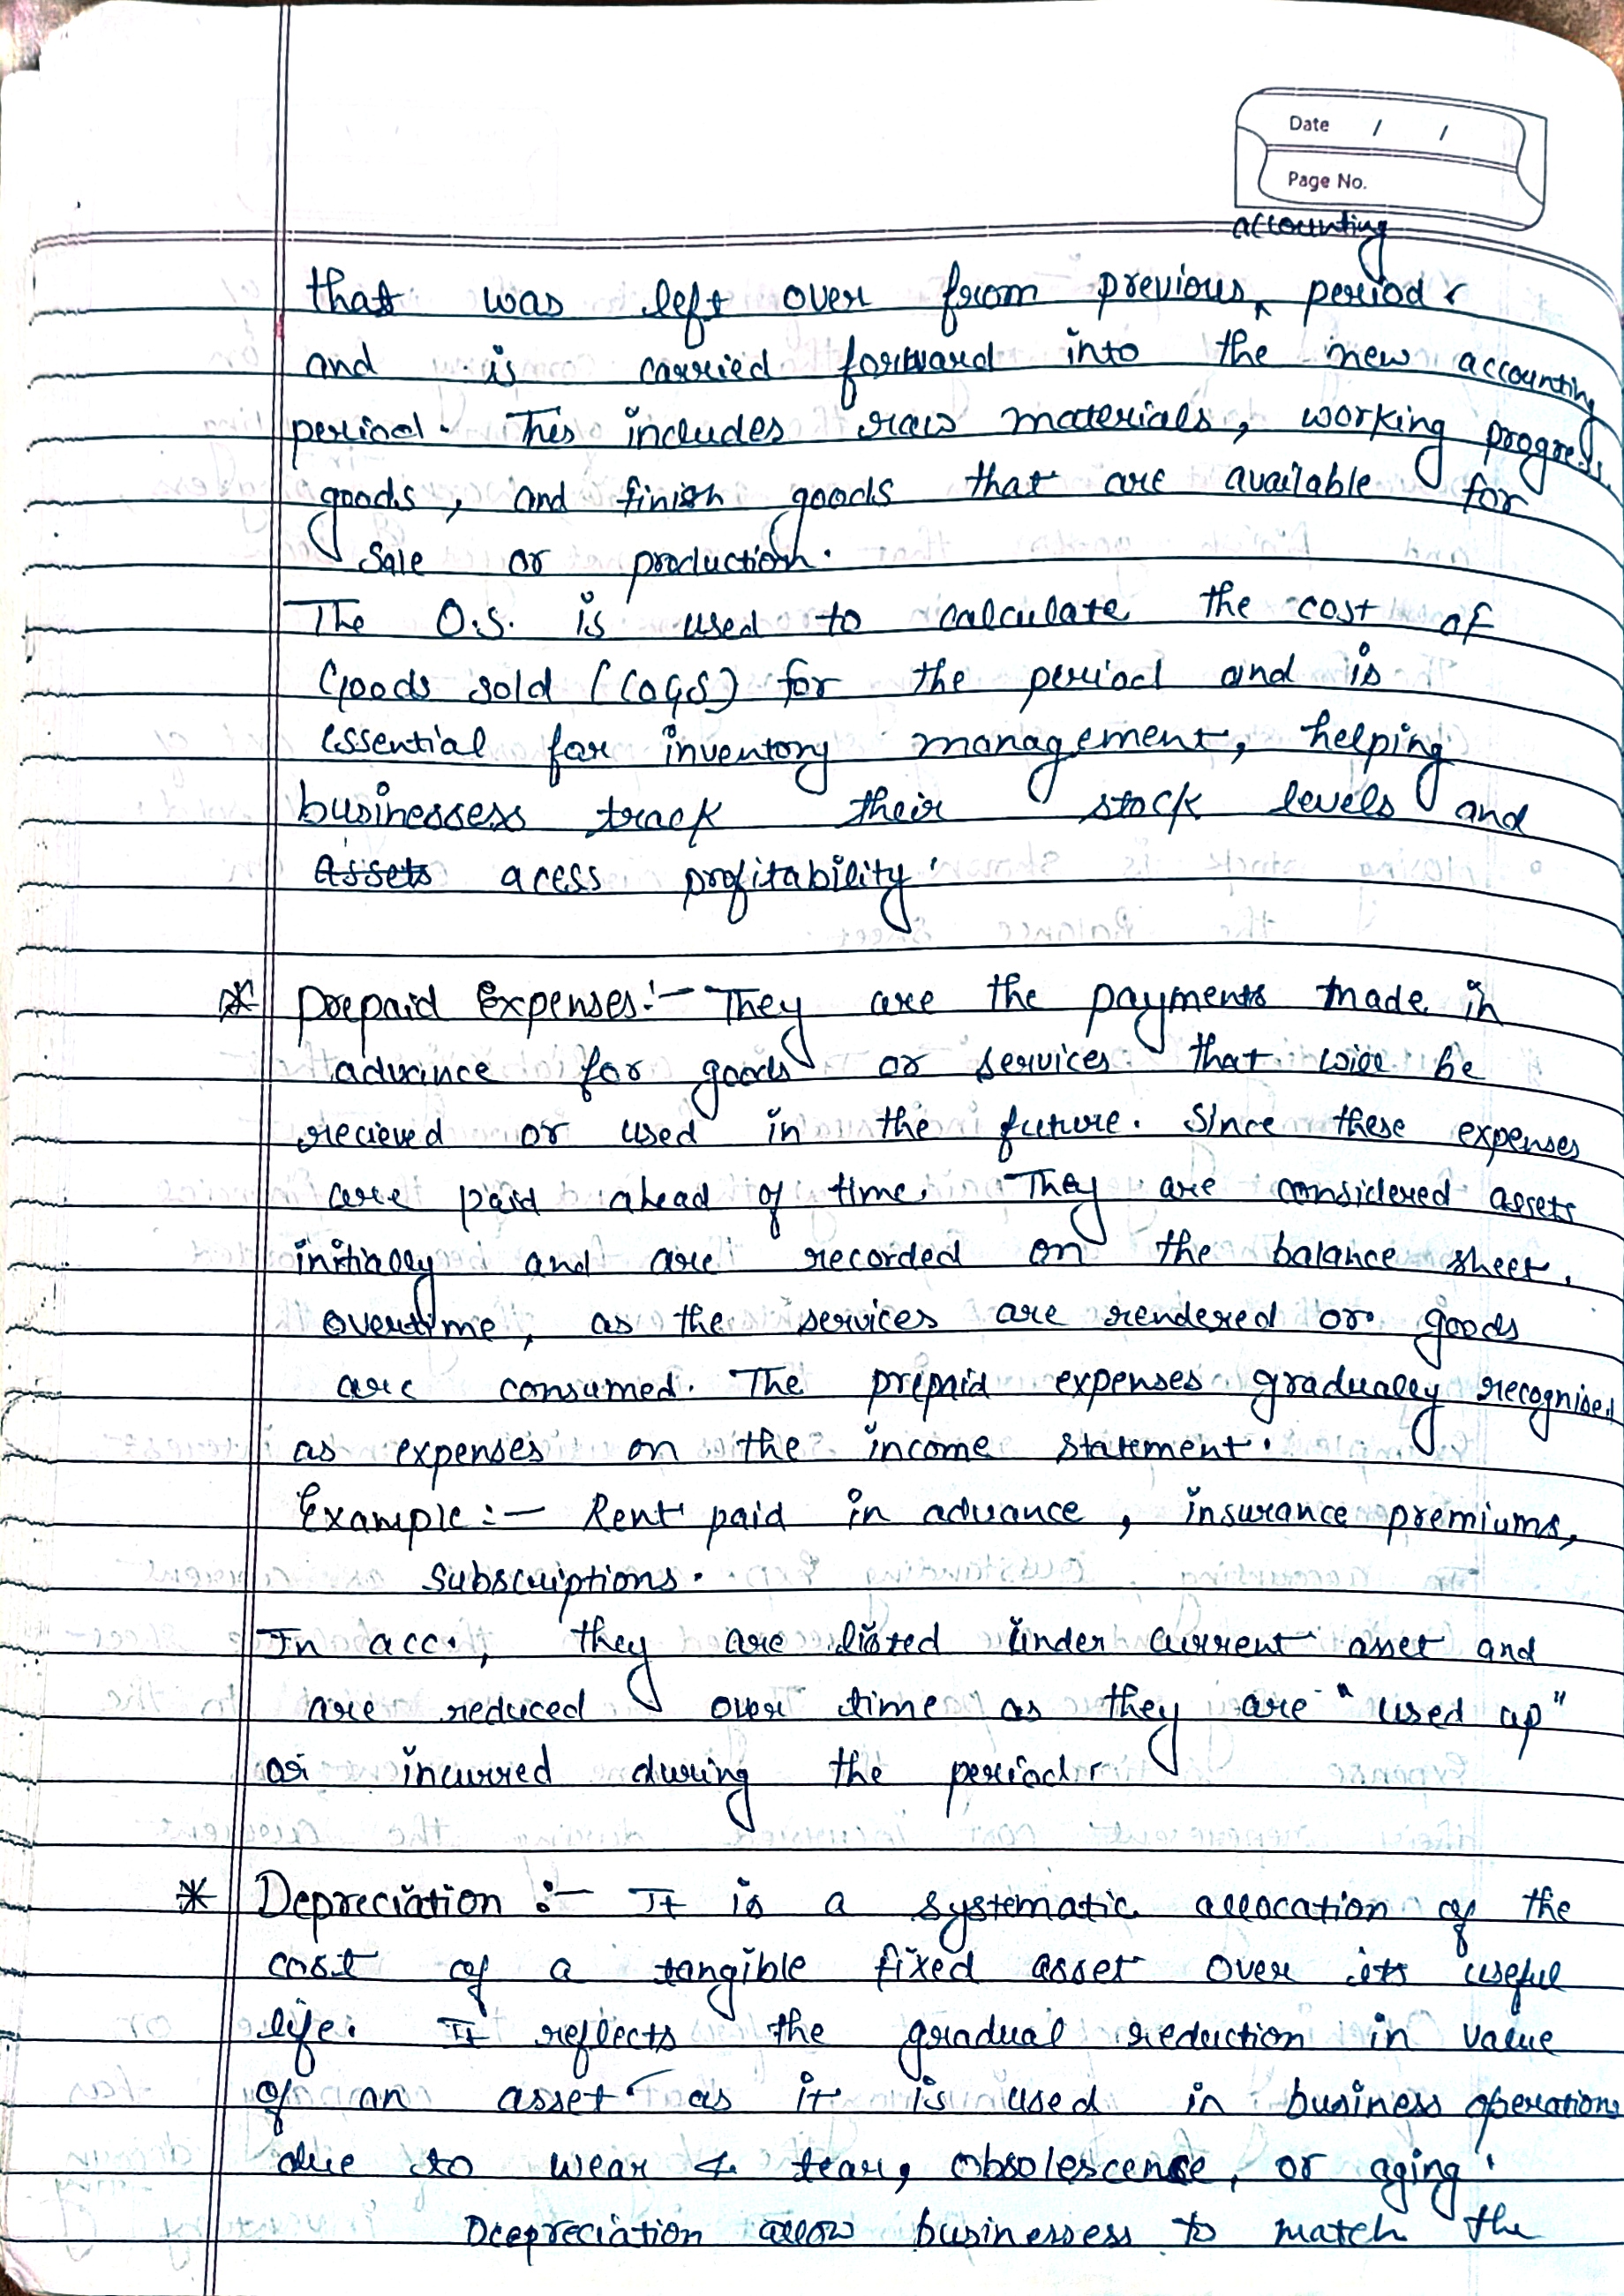 Date / /
Page No.
accounting
that was left over from previous ^ period.
and is carried forward into the new accounting
period. This includes raw materials, working progress
goods, and finish goods that are available for
Sale or production.
The O.S. is used to calculate the cost of
Goods sold (COGS) for the period and is
essential for inventory management, helping
businessess track their stock levels and
Assets acess profitability.
* Prepaid Expenses:- They are the payments made in
advance for goods or services that will be
recieved or used in the future. Since these expenses
are paid ahead of time. They are considered assets
initially and are recorded on the balance sheet.
overtime, as the services are rendered or goods
are consumed. The prepaid expenses gradually recognised
as expenses on the income statement.
Example:- Rent paid in advance, insurance premiums,
subscriptions.
In acc., they are listed under current asset and
are reduced over time as they are "used up"
or incurred during the period.
* Depreciation :- It is a systematic allocation of the
cost of a tangible fixed asset over its useful
life. It reflects the gradual reduction in value
of an asset as it is used in business operations
due to wear & tear, obsolescence, or aging.
Depreciation allow businessess to match the